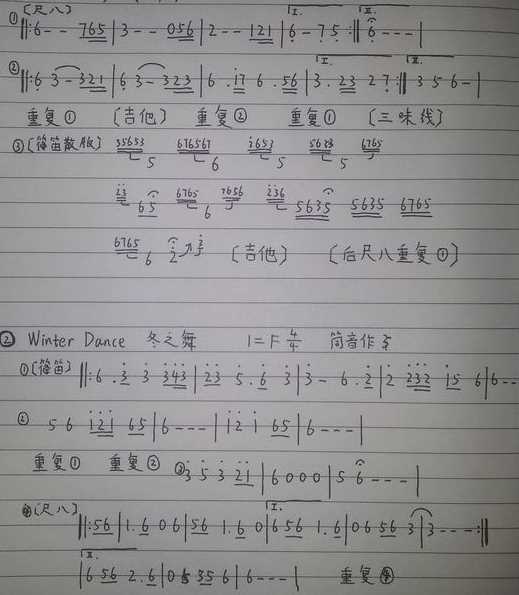 (尺八)
① ‖:6 - - 765 | 3 - - 056 | 2 - - 121 | I. 6 - 75 :‖ II. 6 - - - |
② ‖:6 3 - 321 | 6 3 - 323 | 6 . i7 6 . 56 | I. 3 . 23 2 7 :‖ II. 3 5 6 - |
重复① (吉他) 重复② 重复① (三味线)
③ (篠笛散板) 35653 5 676567 6 i653 5 5 6765
65 6765 6 7656 5635 5635 6765
6765 6 2 (吉他) (后尺八重复①)
② Winter Dance 冬之舞 1=F 4/4 筒音作
① (篠笛) ‖:6 . 3 3 343 | 23 5 . 6 3 | 3 - 6 . 2 | 2 232 i5 6 | 6 - -
② 5 6 i2i 65 | 6 - - - | i 2 i 65 | 6 - - - |
重复① 重复② ③ 3 5 3 21 | 6 0 0 0 | 5 6 - - - |
④ (尺八) ‖:56 | 1 . 6 0 6 | 56 1 . 6 0 | I. 6 56 1 . 6 | 0 6 56 3 | 3 - - - :‖
II. | 6 56 2 . 6 | 0 5 35 6 | 6 - - - | 重复④